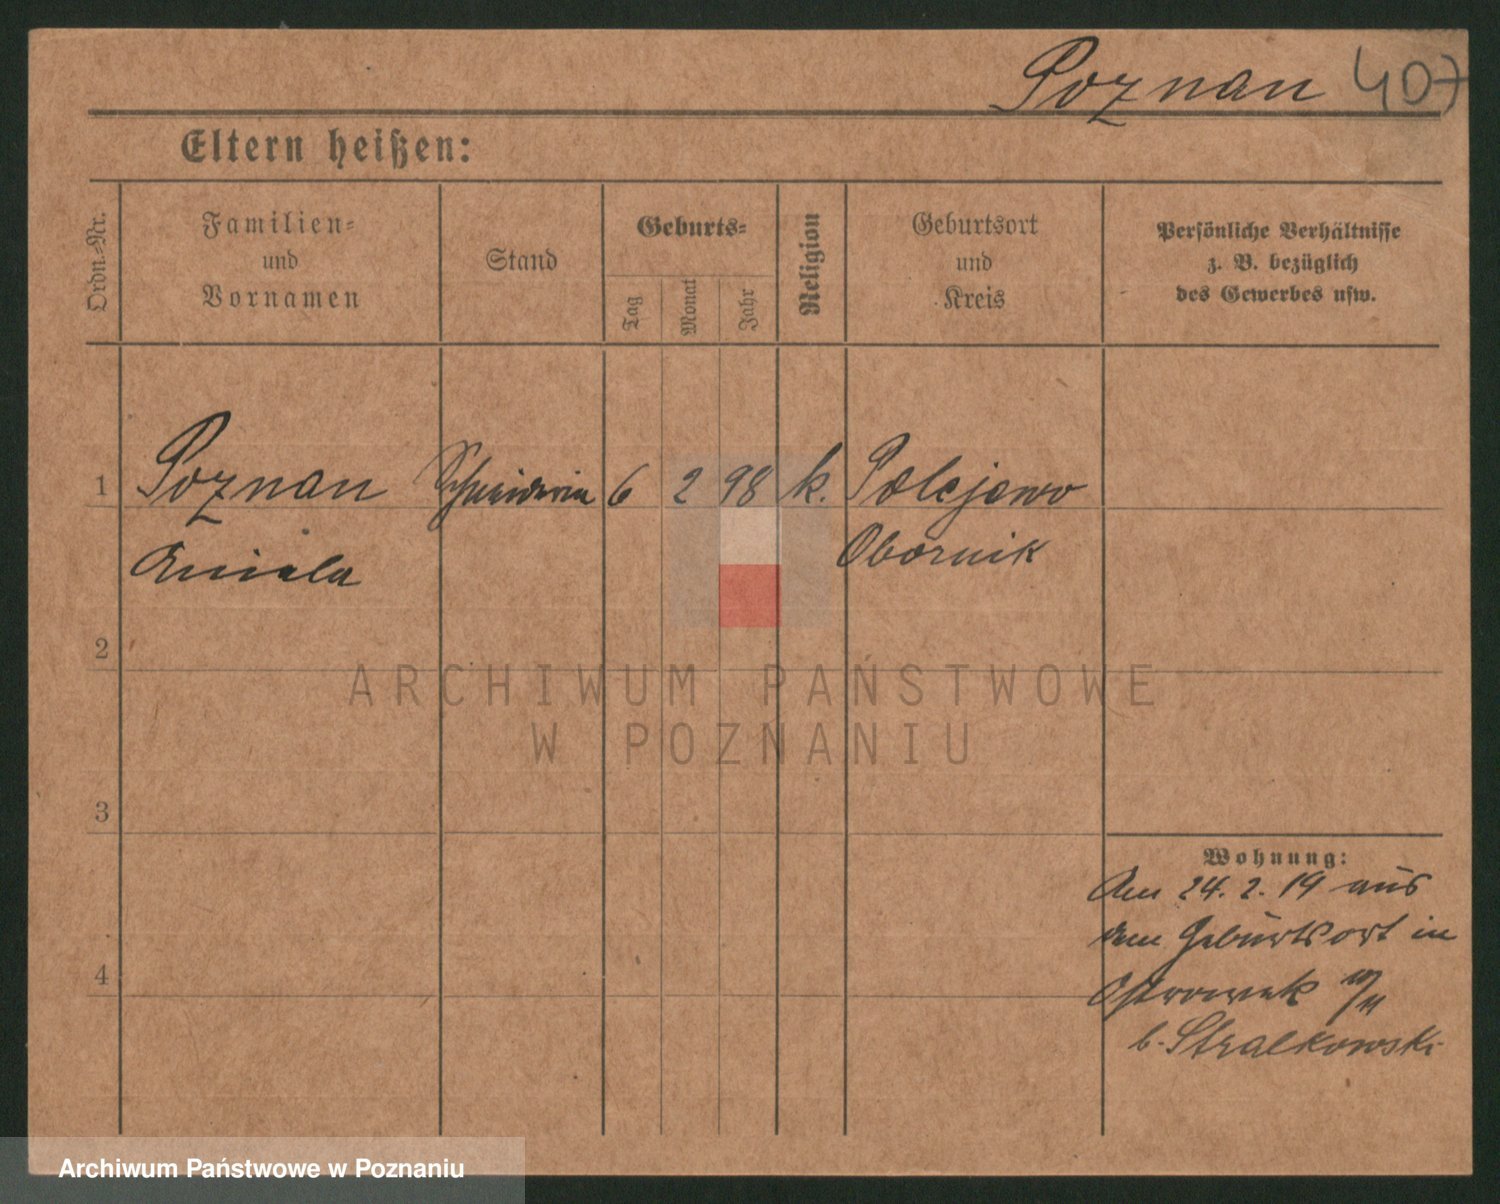 Poznan 407
Eltern heißen:
Ordn.-Nr.
Familien-
und
Vornamen
Stand
Geburts-
Tag
Monat
Jahr
Religion
Geburtsort
und
Kreis
Persönliche Verhältnisse
z. B. bezüglich
des Gewerbes usw.
1 Poznan Schneiderin 6 2 98 k. Polejewo
Aniela Obornik
2
3
4
Wohnung:
Am 24. 2. 19 aus
dem Geburtsort in
Ostrowek 10/11
b. Stralkowski
ARCHIWUM PAŃSTWOWE
W POZNANIU
Archiwum Państwowe w Poznaniu